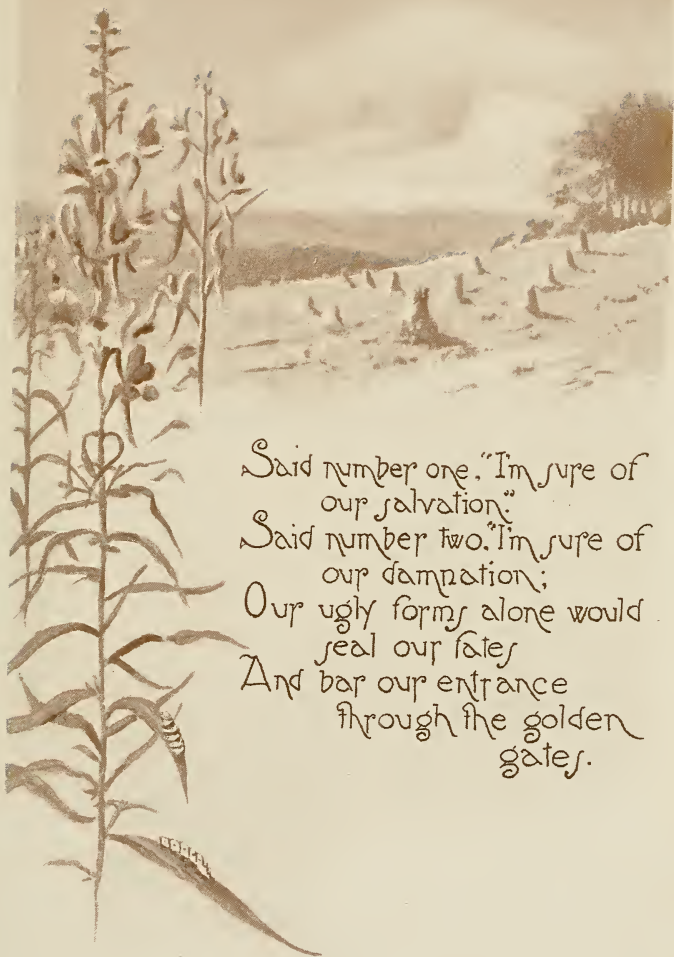 Said number one, "I'm sure of
our salvation."
Said number two, "I'm sure of
our damnation;
Our ugly forms alone would
seal our fates
And bar our entrance
through the golden
gates.